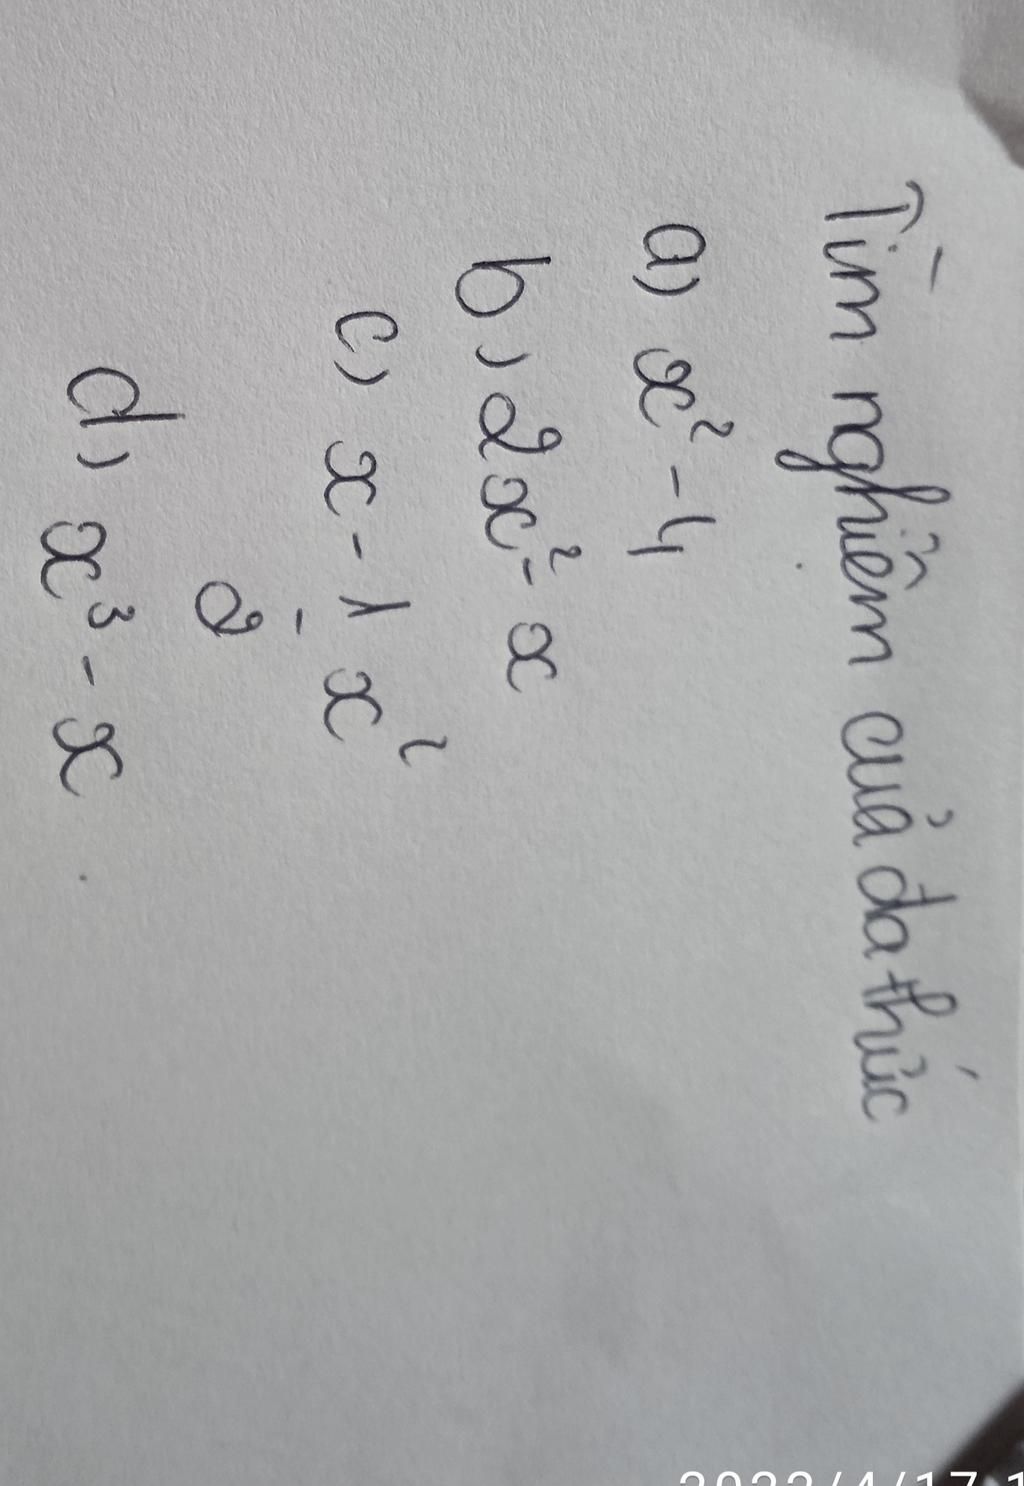 Tìm nghiệm của đa thức
a) x² - 4
b) 2x² - x
c) x - 1/2 x²
d) x³ - x